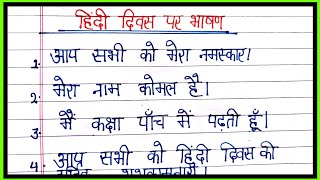 हिंदी दिवस पर भाषण
1. आप सभी को मेरा नमस्कार।
2. मेरा नाम कोमल है।
3. मैं कक्षा पाँच में पढ़ती हूँ।
4. आप सभी को हिंदी दिवस की